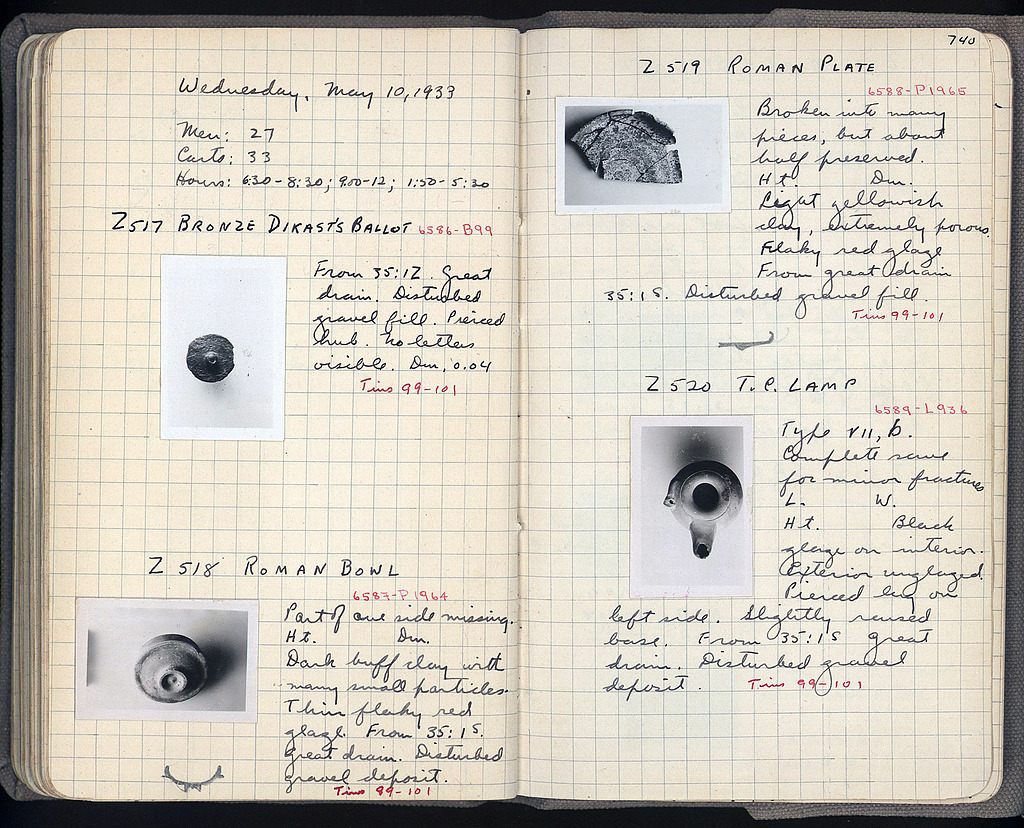 Wednesday, May 10, 1933
Men: 27
Carts: 33
Hours: 6:30-8:30; 9:00-12; 1:30-5:30
Z517 BRONZE DIKAST'S BALLOT 6586-B99
From 35:IZ. Great
drain. Disturbed
gravel fill. Pierced
hub. No letters
visible. Dm, 0.04
Tins 99-101
Z 518 ROMAN BOWL
6587-P1964
Part of one side missing.
Ht. Dm.
Dark buff clay with
many small particles.
Thin flaky red
glaze. From 35:IS.
Great drain. Disturbed
gravel deposit.
Tins 99-101
740
Z 519 ROMAN PLATE
6588-P1965
Broken into many
pieces, but about
half preserved.
Ht. Dm.
Light yellowish
clay, extremely porous.
Flaky red glaze
From great drain
35:IS. Disturbed gravel fill.
Tins 99-101
Z 520 T.C. LAMP
6589-L936
Type VII, B.
Complete save
for minor fractures
L. W.
Ht. Black
glaze on interior.
Exterior unglazed.
Pierced lug on
left side. Slightly raised
base. From 35:IS great
drain. Disturbed gravel
deposit. Tins 99-101